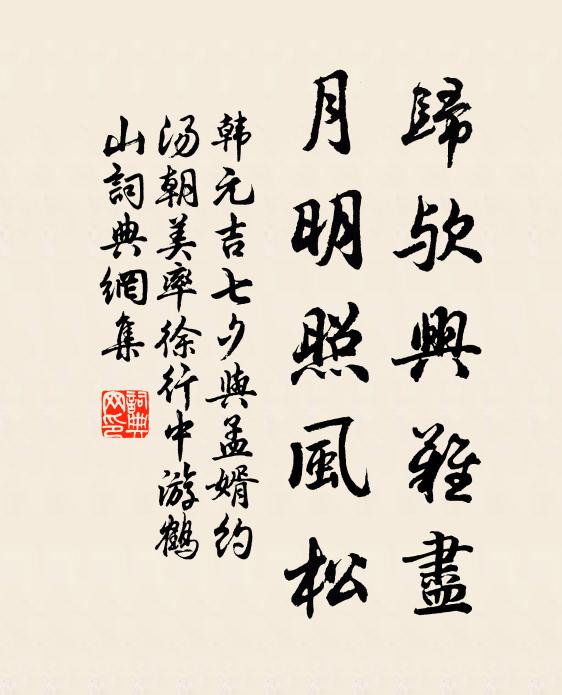 歸歟興難盡
月明照風松
韩元吉七夕與孟婿约
汤朝美率徐行中游鹤
山詞典網集
詞典网印